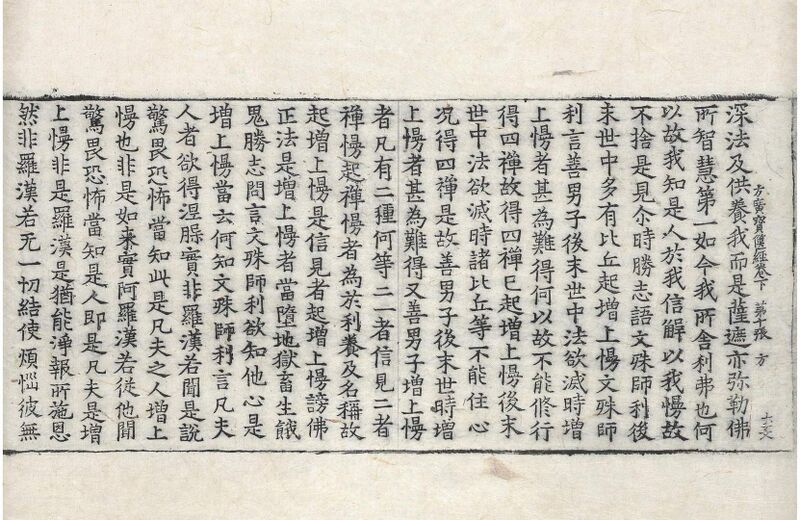 深法及供養我而是薩遮亦弥勒佛
方廣寶篋經卷下 第 張 方
所智慧第一如今我所舍利弗也何
以故我知是人於我信解以我慢故
不捨是見尒時勝志語文殊師利後
末世中多有比丘起增上慢文殊師
利言善男子後末世中法欲滅時增
上慢者甚為難得何以故不能修行
得四禪故得四禪已起增上慢後末
世中法欲滅時諸比丘等不能住心
况得四禪是故善男子後末世時增
上慢者甚為難得又善男子增上慢
者凡有二種何等二一者信見二者
禪慢起禪慢者為於利養及名稱故
起增上慢是信見者起增上慢謗佛
正法是增上慢者當墮地獄畜生餓
鬼勝志問言文殊師利欲知他心是
增上慢當云何知文殊師利言凡夫
人者欲得涅槃實非羅漢若聞是說
驚畏恐怖當知此是凡夫之人增上
慢也非是如来實阿羅漢若從他聞
驚畏恐怖當知是人即是凡夫是增
上慢非是羅漢是猶能淨報所施恩
然非羅漢若无一切結使煩惱彼無